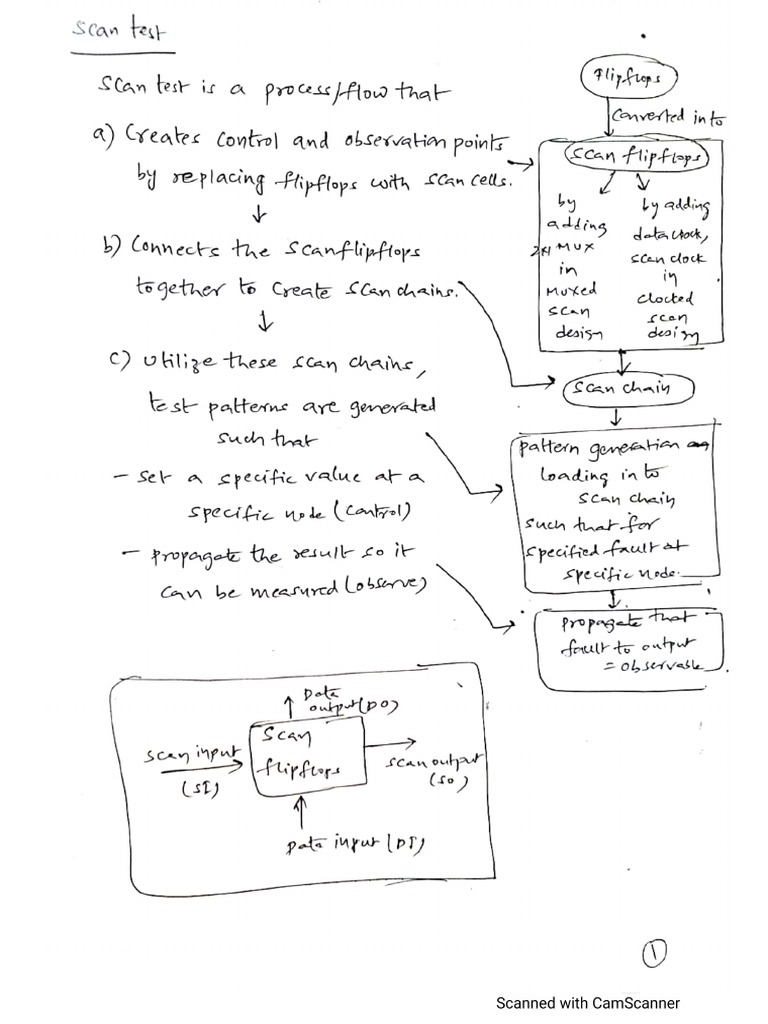 Scan test
Scan test is a process/flow that
a) Creates control and observation points
by replacing flipflops with scan cells.
b) Connects the scanflipflops
together to create scan chains.
c) Utilize these scan chains,
test patterns are generated
such that
- set a specific value at a
specific node (control)
- propagate the result so it
can be measured (observe)
flipflops
converted into
scan flipflops
by
adding
2x1 MUX
in
Muxed
scan
design
by adding
data clock,
scan clock
in
clocked
scan
design
scan chain
pattern generation
loading in to
scan chain
such that for
specified fault at
specific node.
propagate that
fault to output
= observable
Data
output (DO)
Scan
flipflops
scan input
(SI)
scan output
(SO)
Data input (DI)
1
Scanned with CamScanner